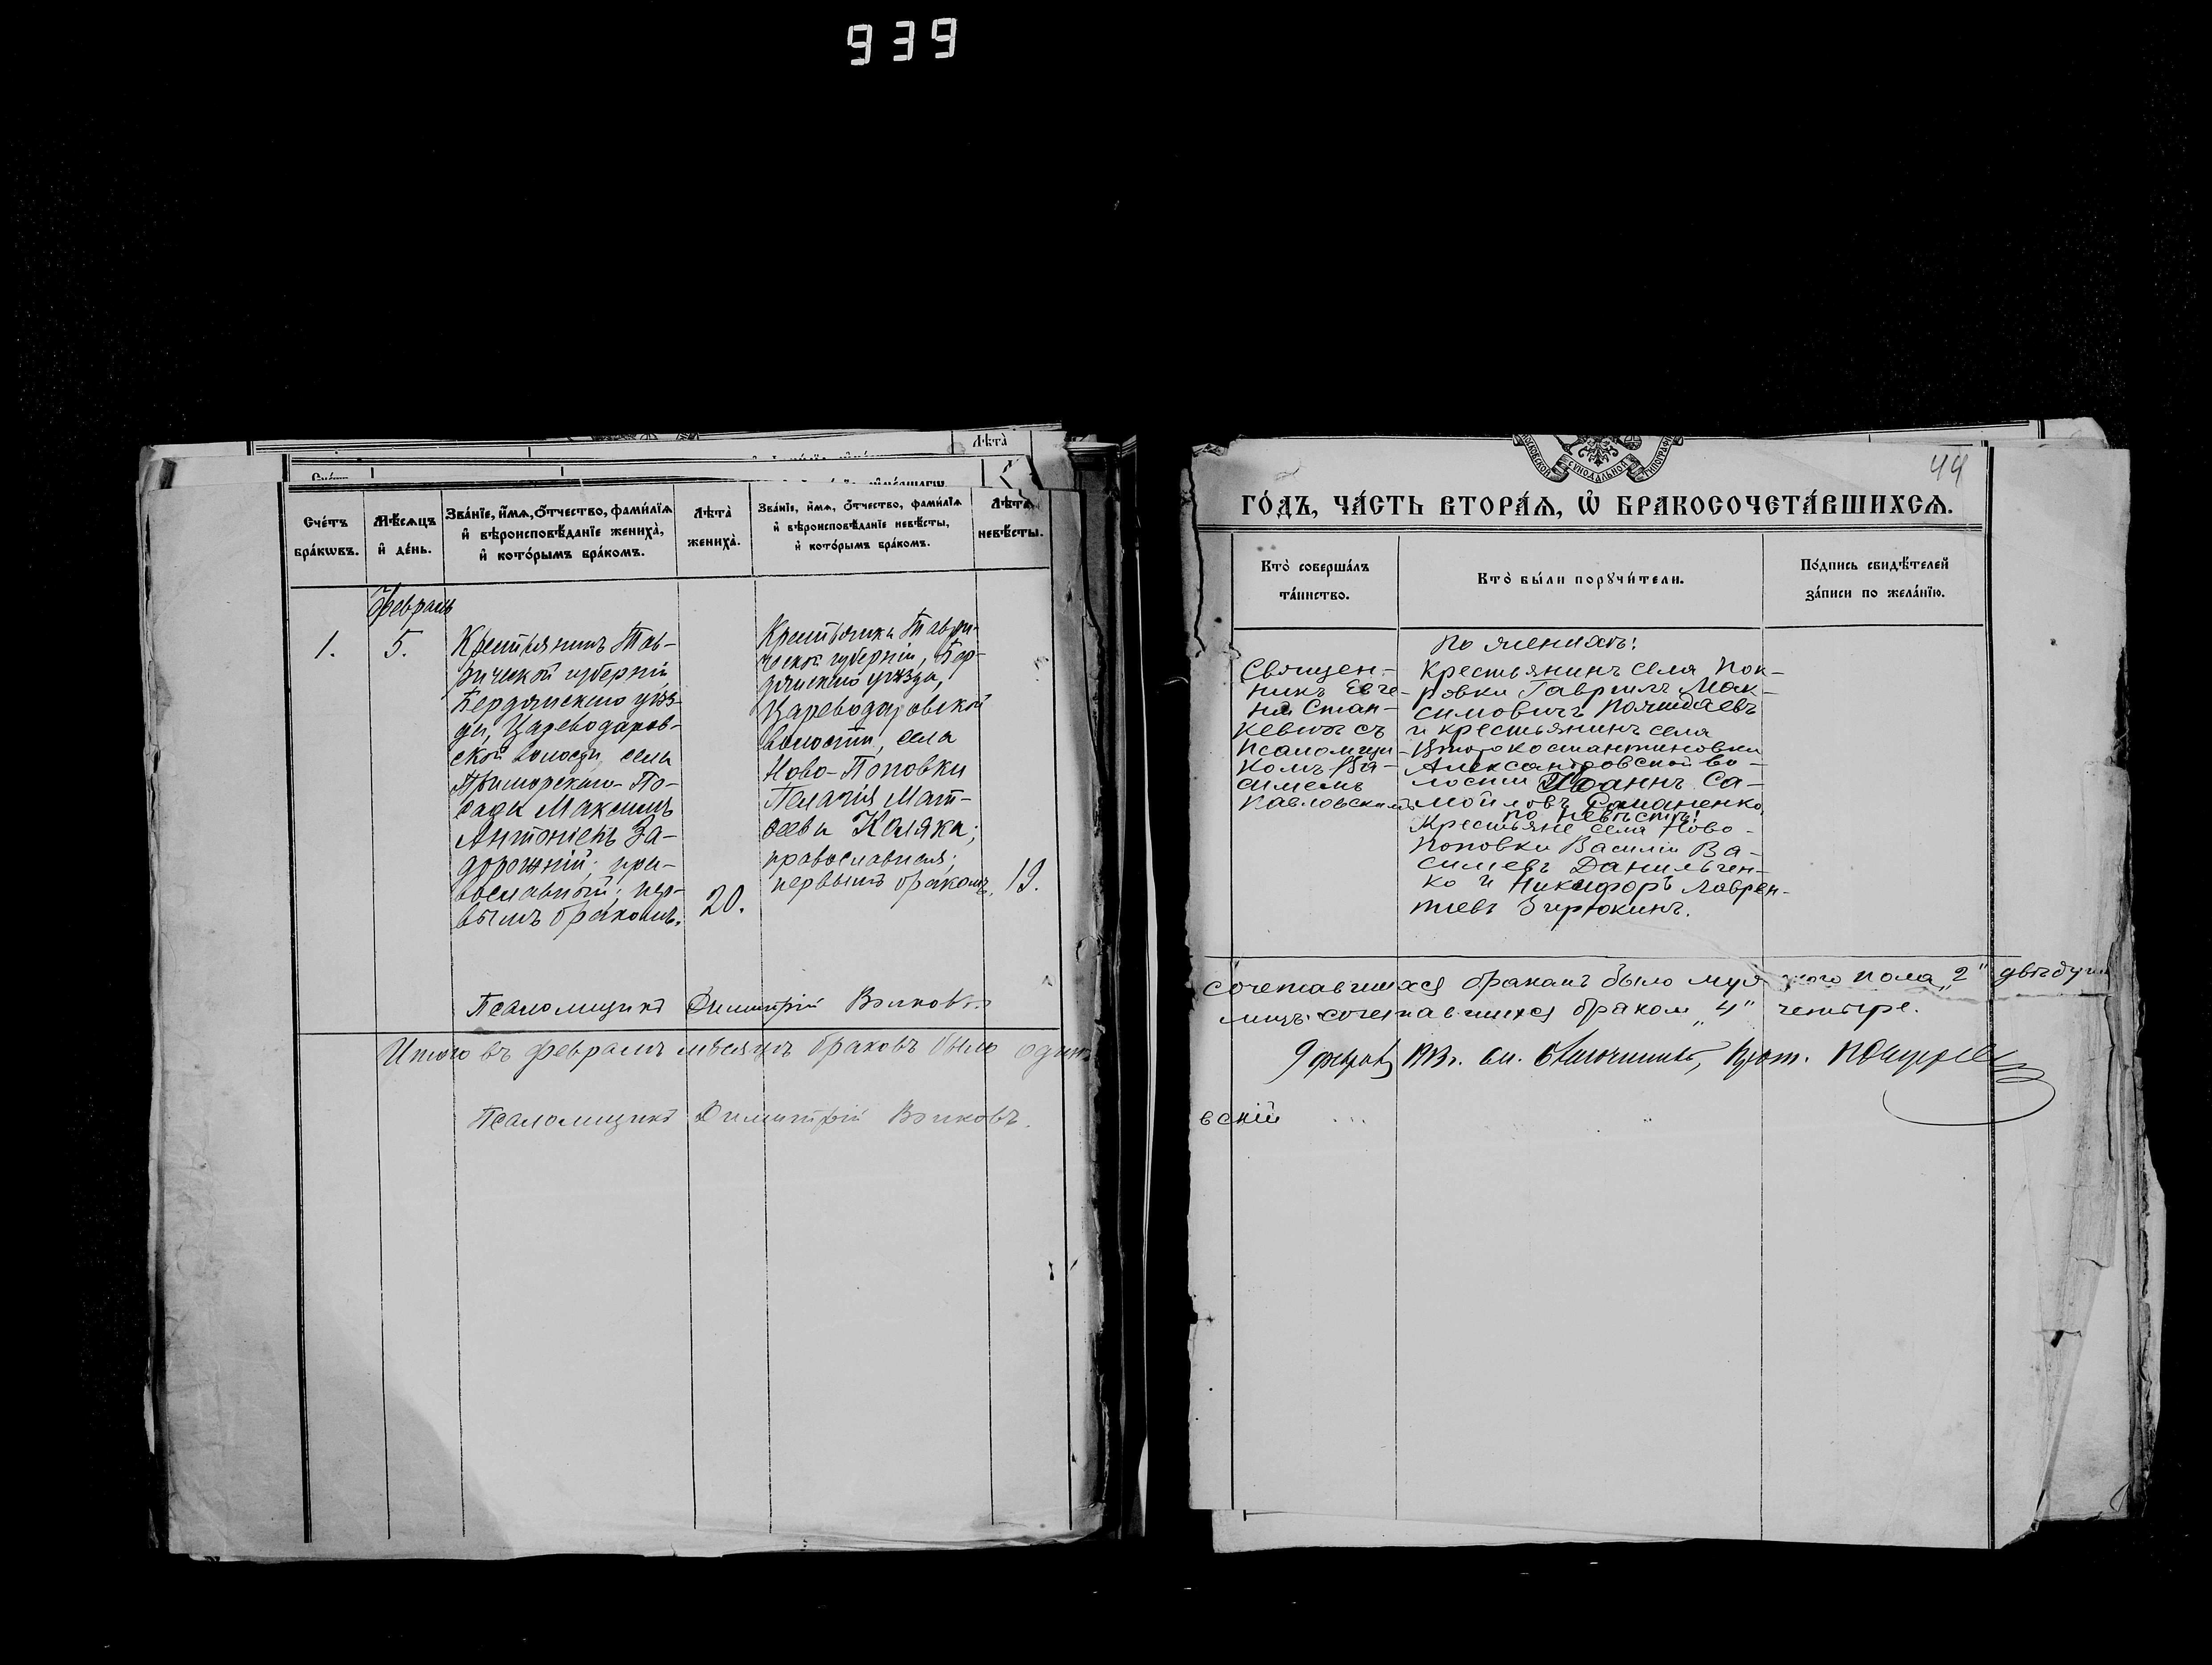 939
Лѣта̀
Сче́тъ бра́кѡвъ.
Мѣ́сѧцъ и҆ де́нь.
Зва́нїе, и҆́мѧ, ѻ҆́тчество, фами́лїѧ
и҆ вѣроисповѣ́данїе жениха̀,
и҆ кото́рымъ бра́комъ.
Лѣта̀ жениха̀.
Зва́нїе, и҆́мѧ, ѻ҆́тчество, фами́лїѧ
и҆ вѣроисповѣ́данїе невѣ́сты,
и҆ кото́рымъ бра́комъ.
Лѣта̀ невѣ́сты.
Февраль
1.
5.
Крестьянинъ Тав-
рической губерніи
Бердянскаго уѣз-
да, Цареводаров-
ской волости, села
Приморскаго По-
сада Максимъ
Антоніевъ За-
дорожній; пра-
вославный; пер-
вымъ бракомъ.
20.
Крестьянка Таври-
ческой губерніи, Бер-
дянскаго уѣзда,
Цареводаровской
волости, села
Ново-Поповки
Пелагія Мат-
ѳеева Коляка;
православная;
первымъ бракомъ.
19.
Псаломщикъ Димитрій Волковъ.
Итого въ февралѣ мѣсяцѣ браковъ было одинъ
Псаломщикъ Димитрій Волковъ.
44
МОСКОВСКОЙ СѴНОДАЛЬНОЙ ТИПОГРАФІИ
ГО́ДЪ, ЧА́СТЬ ВТОРА́Ѧ, Ѡ҆ БРАКОСОЧЕТА́ВШИХСѦ.
Кто̀ соверша́лъ
та́инство.
Кто̀ бы́ли порꙋчи́тели.
По́дпись свидѣ́телей
за́писи по жела́нїю.
Священ-
никъ Евге-
ній Стан-
кевичъ съ
псаломщи-
комъ Ва-
силіемъ
Павловскимъ
по женихѣ:
Крестьянинъ села Пок-
ровки Гавріилъ Мак-
симовичъ
и крестьянинъ села
Второконстантиновки
Александровской во-
лости Іоаннъ Са-
мойловъ Романенко,
по невѣстѣ:
Крестьяне села Ново-
поповки Василій Ва-
силіевъ Данильчен-
ко и Никифоръ Лаврен-
тіевъ Зирюкинъ.
Сочетавшихся бракомъ было мужского пола „2"
лицъ сочетавшихся бракомъ „4" четыре.
9 февраля 1913 г.
вскій